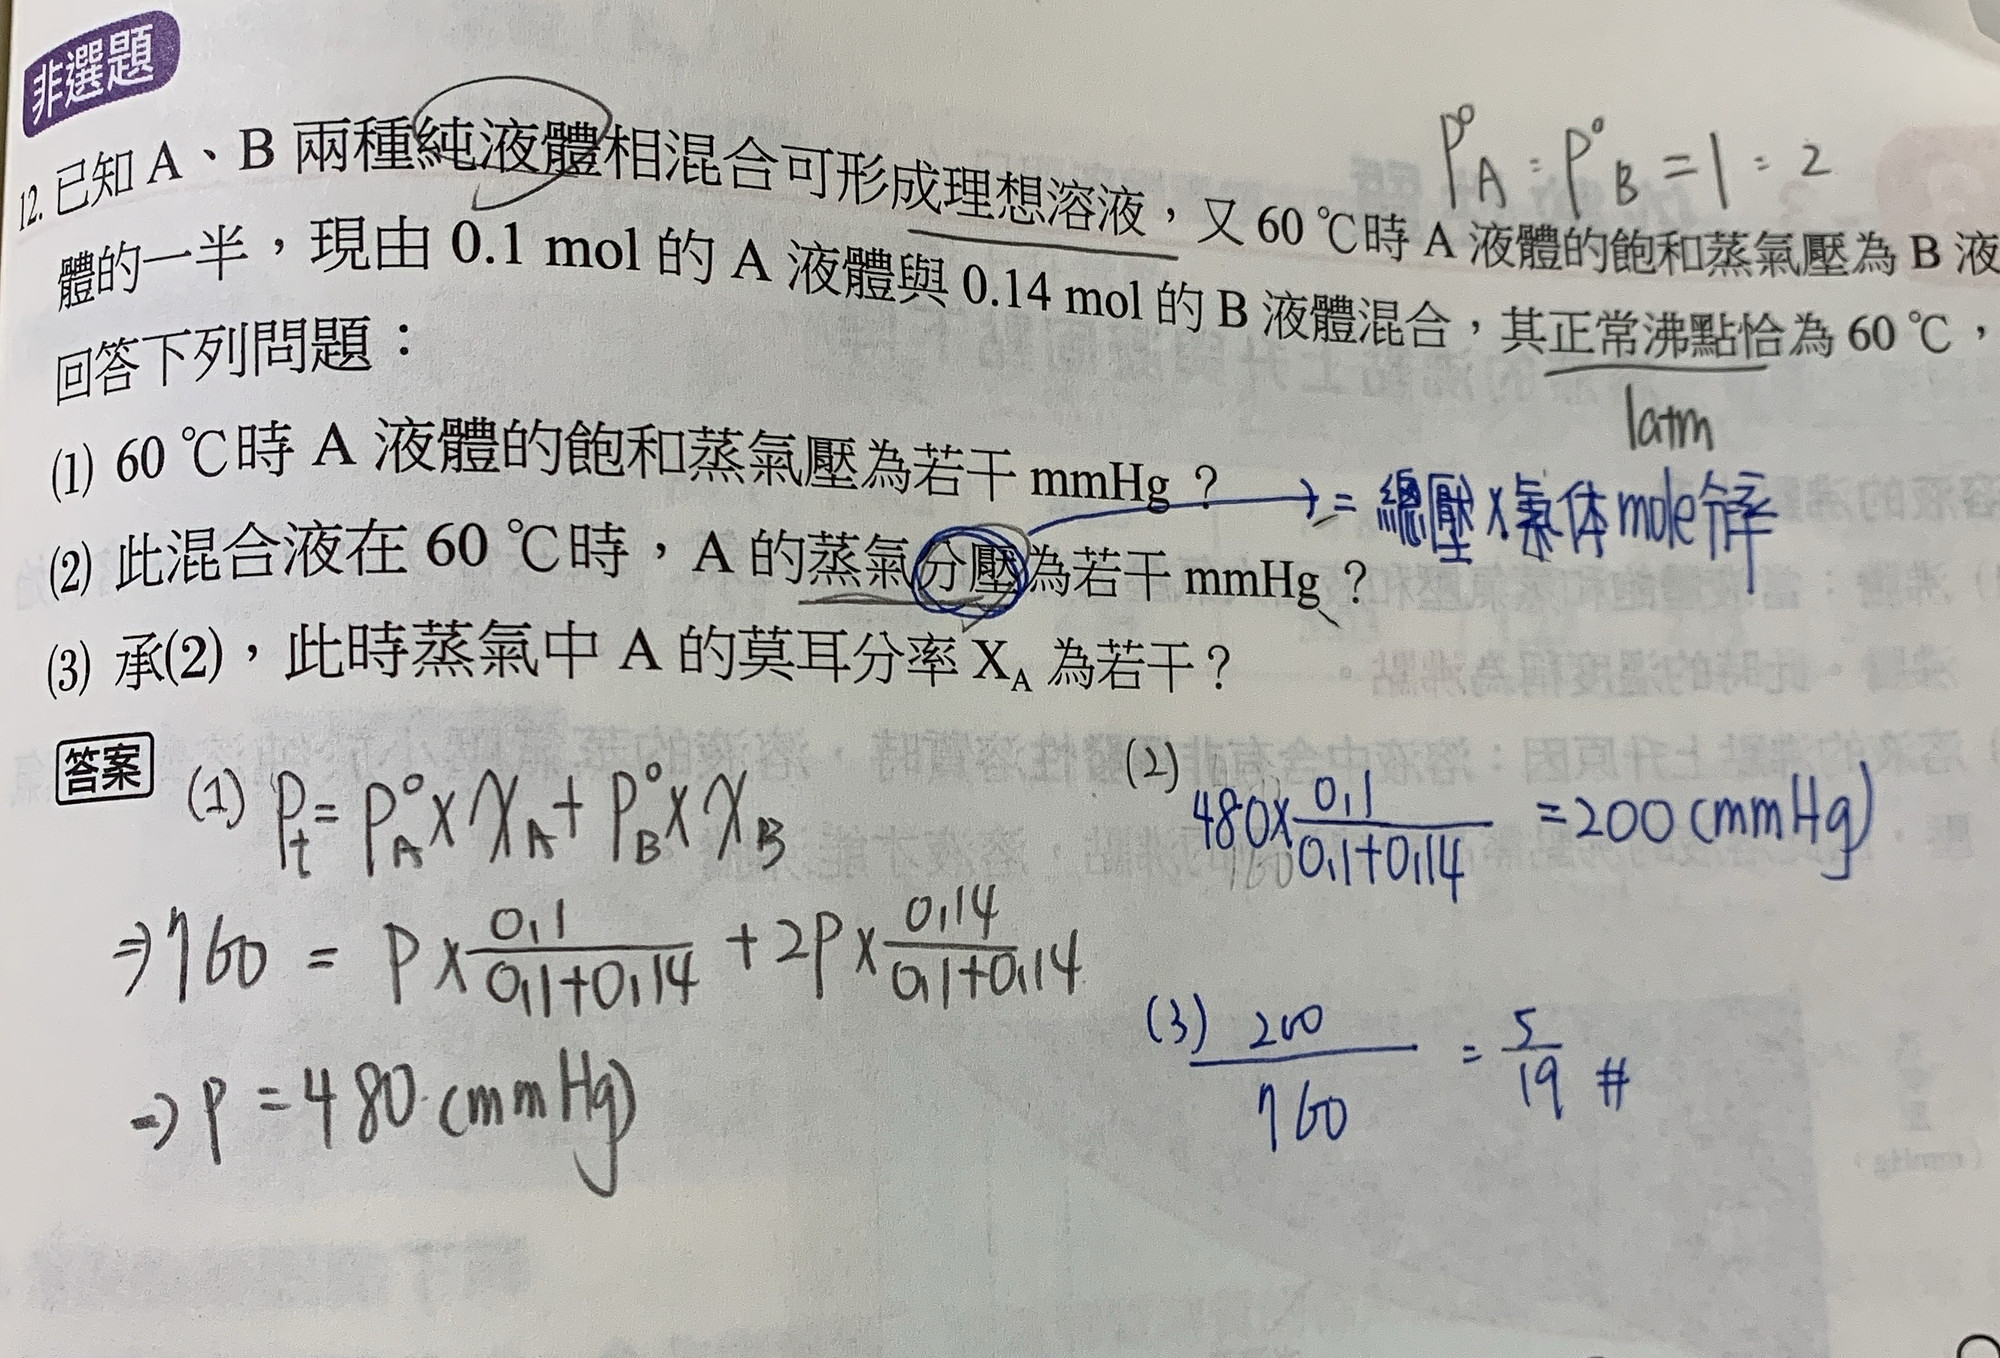 非選題
P°A : P°B = 1 : 2
12. 已知 A、B 兩種純液體相混合可形成理想溶液，又 60 ℃時 A 液體的飽和蒸氣壓為 B 液
體的一半，現由 0.1 mol 的 A 液體與 0.14 mol 的 B 液體混合，其正常沸點恰為 60 ℃，
1atm
回答下列問題：
(1) 60 ℃時 A 液體的飽和蒸氣壓為若干 mmHg？
→ = 總壓 × 氣体 mole 分率
(2) 此混合液在 60 ℃時，A 的蒸氣分壓為若干 mmHg？
(3) 承(2)，此時蒸氣中 A 的莫耳分率 XA 為若干？
答案
(1) Pt = P°A × XA + P°B × XB
⇒ 760 = P × 0.1/(0.1+0.14) + 2P × 0.14/(0.1+0.14)
⇒ P = 480 (mmHg)
(2) 480 × 0.1/(0.1+0.14) = 200 (mmHg)
(3) 200/760 = 5/19 #